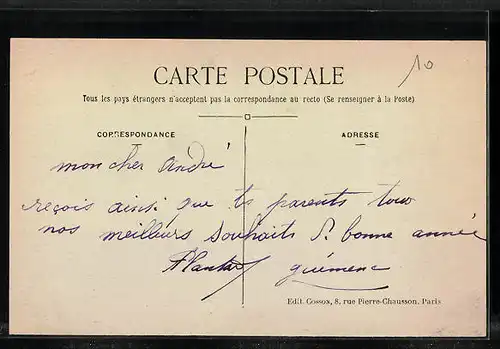 10
CARTE POSTALE
Tous les pays étrangers n'acceptent pas la correspondance au recto (Se renseigner à la Poste)
CORRESPONDANCE
ADRESSE
mon cher André
reçois ainsi que ts parents tous
nos meilleurs souhaits d. bonne année
Edit. Gossox, 8, rue Pierre-Chausson. Paris